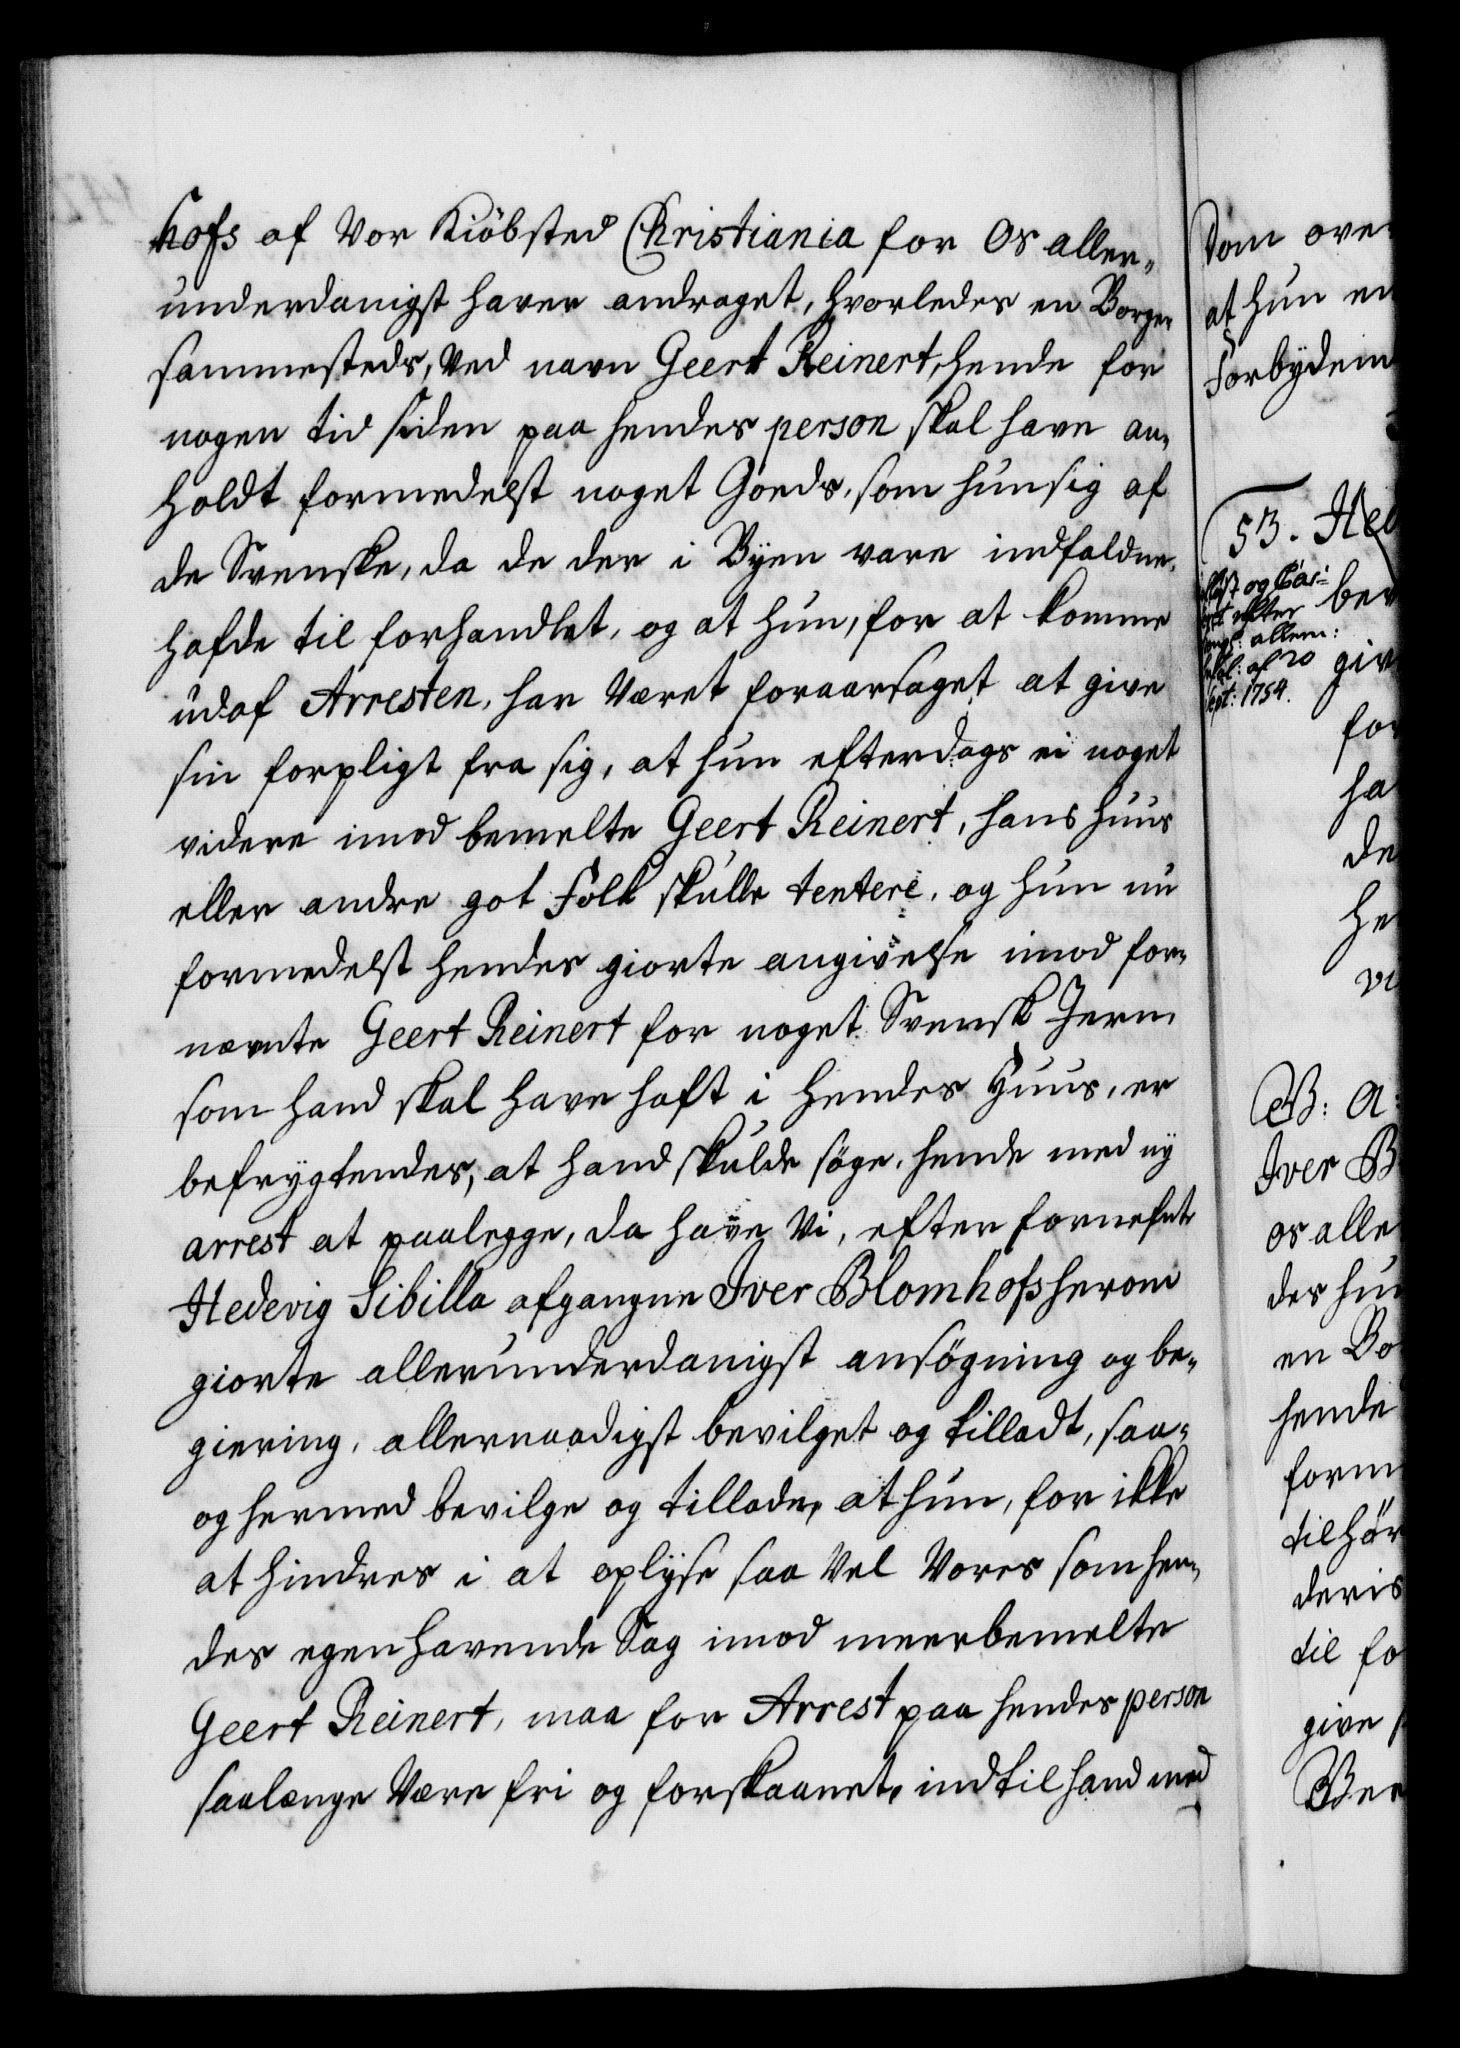 hofs af Vor Kiöbsted Christiania for Os aller-
underdanigst haver andraget, hvorledes en Borger
sammesteds, Ved navn Geert Reinert, hende for
nogen tid siden paa hendes person skal have an-
holdt formedelst noget Goeds, som hun sig af
de Svenske, da de der i Byen vare indfaldne,
hafde til forhandlet, og at hun, for at komme
udaf Arresten, har Været foraarsaget at give
sin forpligt fra sig, at hun efterdags ei noget
videre imod bemelte Geert Reinert, hans huus
eller andre got Folk skulle tentere, og hun nu
formedelst hendes giorte angivelse imod for-
nevnte Geert Reinert for noget Svensk Jern,
som hand skal have haft i hendes Huus, er
befrygtendes, at hand skulde söge, hende med ny
arrest at paalegge, da have Vi, efter fornefnte
Hedevig Sibilla afgangne Iver Blomhofs herom
giorte allerunderdanigst ansögning og be-
giering, allernaadigst bevilget og tilladt, saa-
og hermed bevilge og tillade, at hun, for ikke
at hindres i at oplÿse saa Vel Vores som hen-
des egen havende Sag imod meerbemelte
Geert Reinert, maa for Arrest paa hendes person
saalænge Være fri og forskaanet, indtil hand med
Dom ove
at hun en
Forbydem
53. Hed
og Cas-
efter
allern:
af 20
Sept: 1754.
bev
giv
for
ha
de
he
vi
G: A:
Iver B
os alle
des hun
en Bo
hende
form
tilhör
deris
til fo
give s
Ver